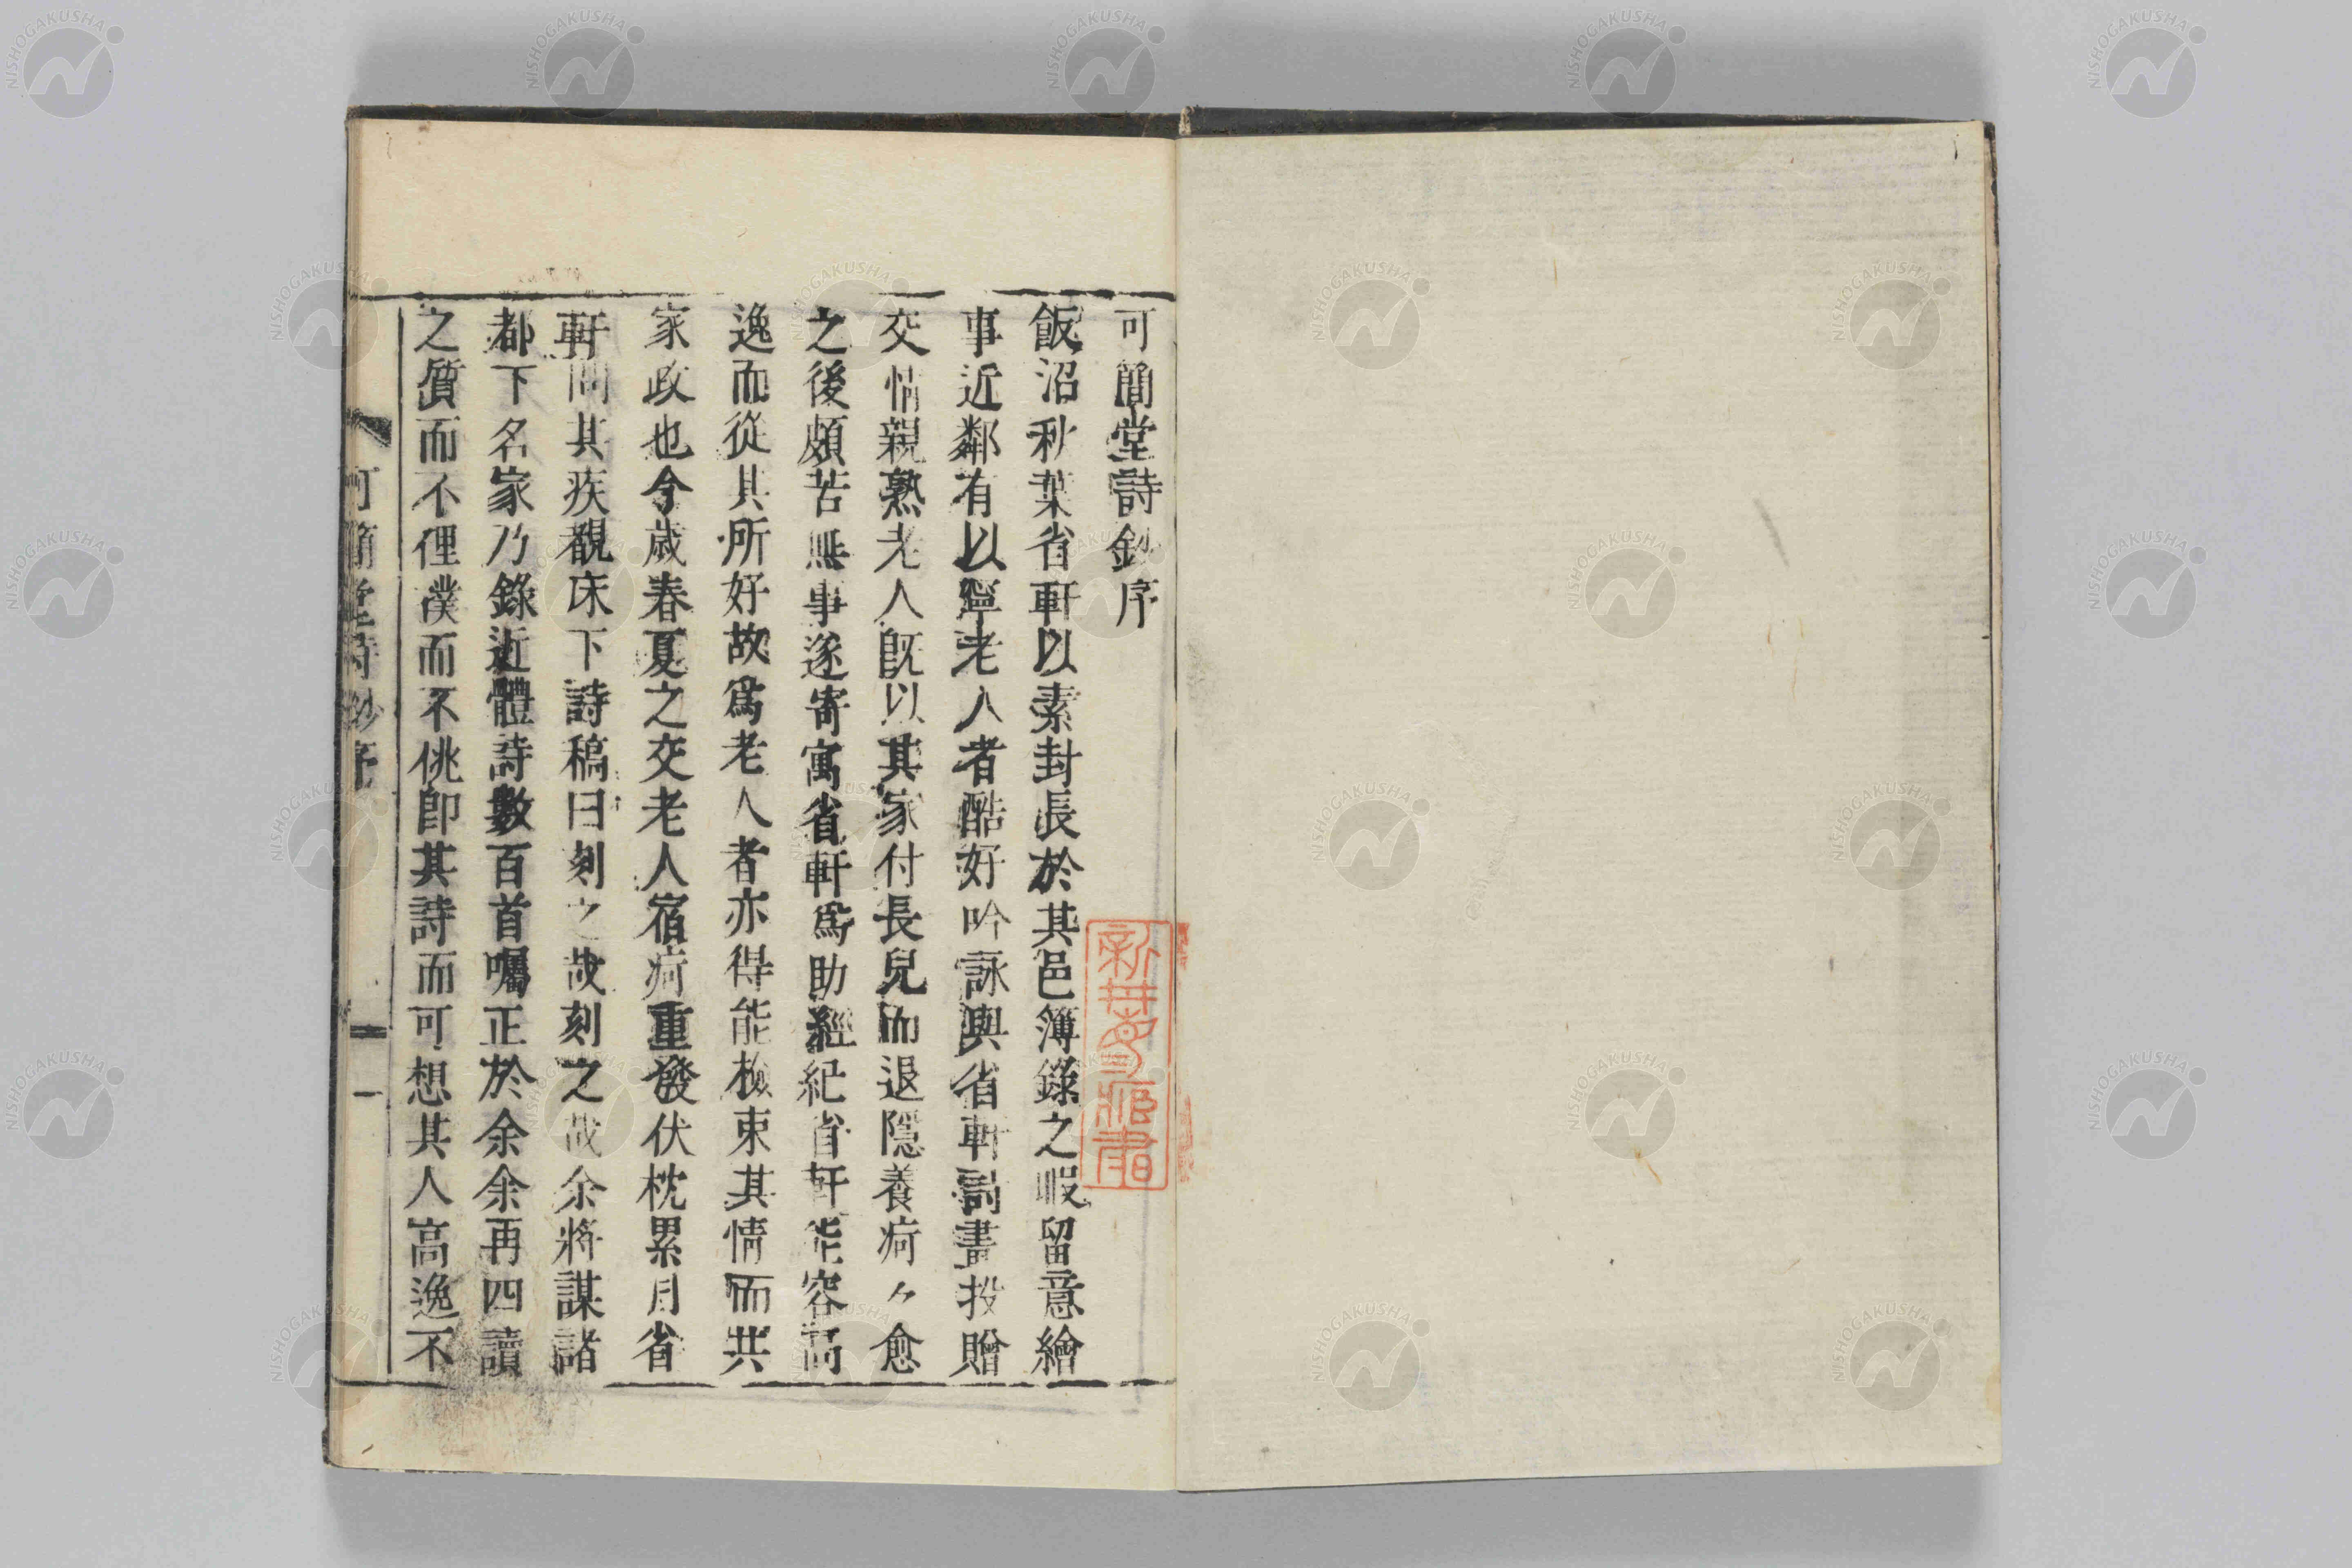 可簡堂詩鈔序
飯沼秋葉省軒以素封長於其邑簿錄之暇留意繪
事近鄰有以寧老人者酷好吟詠與省軒詩畫投贈
交情親熟老人既以其家付長兒而退隱養痾々愈
之後頗苦無事遂寄寓省軒爲助經紀省軒能容高
逸而從其所好故爲老人者亦得能檢束其情而共
家政也今歲春夏之交老人宿痾重發伏枕累月省
軒問其疾覩床下詩稿曰刻之哉刻之哉余將謀諸
都下名家乃錄近體詩數百首囑正於余余再四讀
之質而不俚樸而不佻卽其詩而可想其人高逸不
可簡堂詩鈔序
一
NISHOGAKUSHA